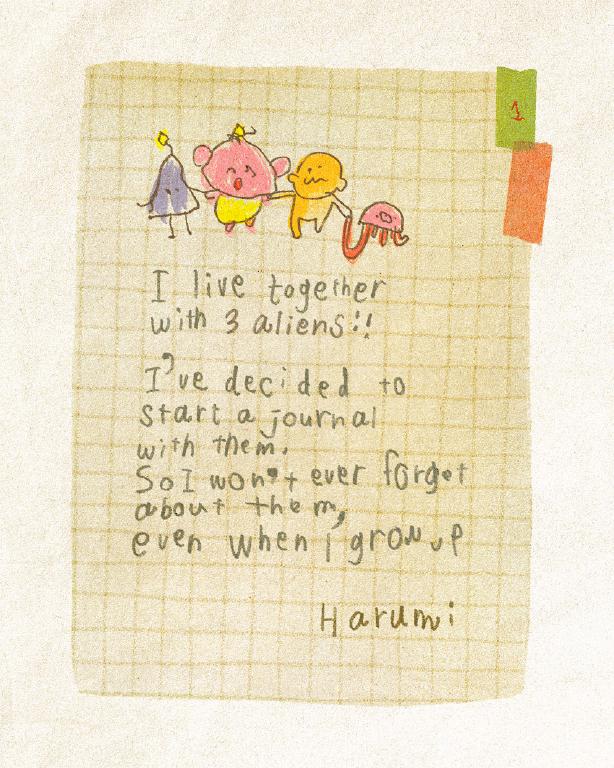 1
I live together
with 3 aliens!!
I've decided to
start a journal
with them.
So I won't ever forget
about them,
even when i grow up
Harumi